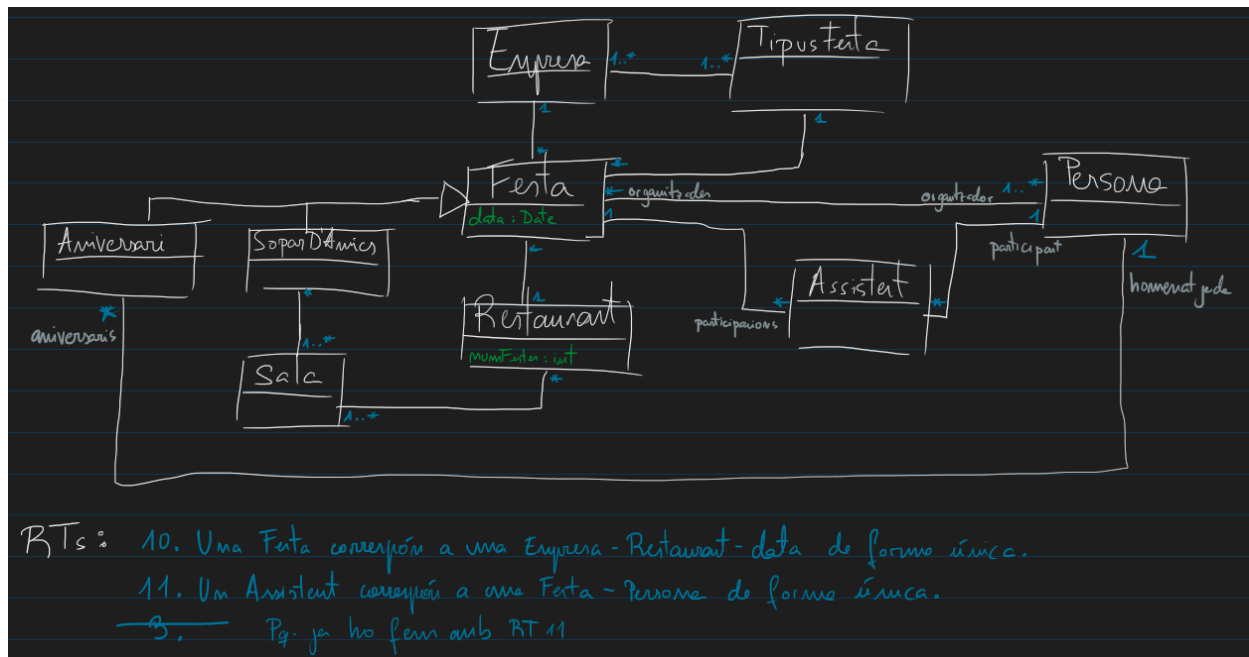 Empresa
1..*
1..*
TipusFesta
1
1
*
*
Festa
data : Date
*
organitzades
organitzador
1..*
Persona
1
1
participant
1
homenatjada
Aniversari
SoparD'Amics
*
1
Restaurant
numFestes : int
*
participacions
*
Assistent
*
*
aniversaris
*
1..*
Sala
1..*
RTs:
10. Una Festa correspón a una Empresa - Restaurant - data de forma única.
11. Un Assistent correspón a una Festa - Persona de forma única.
3. Pq. ja ho fem amb RT 11